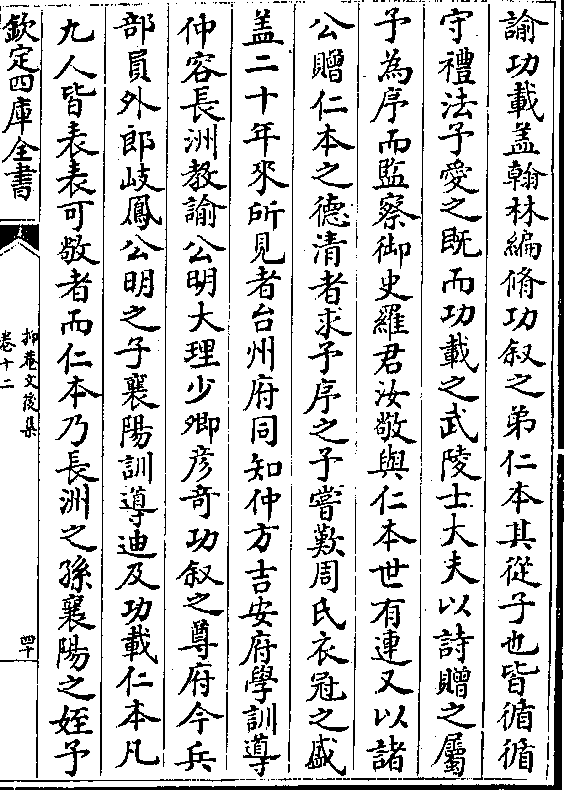 諭功載盖翰林編脩功叙之弟仁本其從子也皆循循
守禮法予愛之既而功載之武陵士大夫以詩贈之屬
予為序而監察御史羅君汝敬與仁本世有連又以諸
公贈仁本之德清者求予序之予嘗歎周氏衣冠之盛
盖二十年來所見者台州府同知仲方吉安府學訓導
仲容長洲教諭公明大理少卿彦奇功叙之尊府今兵
部員外郎岐鳳公明之子襄陽訓導迪及功載仁本凡
九人皆表表可敬者而仁本乃長洲之孫襄陽之姪予
欽定四庫全書
抑菴文後集
卷十二
四十